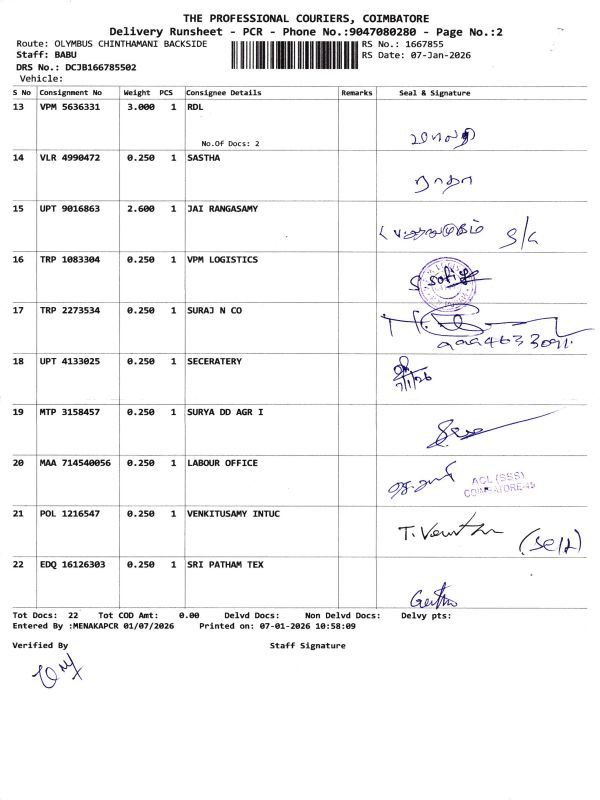 THE PROFESSIONAL COURIERS, COIMBATORE
Delivery Runsheet - PCR - Phone No.:9047080280 - Page No.:2
Route: OLYMBUS CHINTHAMANI BACKSIDE RS No.: 1667855
Staff: BABU RS Date: 07-Jan-2026
DRS No.: DCJB166785502
Vehicle:
S No Consignment No Weight PCS Consignee Details Remarks Seal & Signature
13 VPM 5636331 3.000 1 RDL
No.Of Docs: 2
14 VLR 4990472 0.250 1 SASTHA
ராதா
15 UPT 9016863 2.600 1 JAI RANGASAMY
S/G
16 TRP 1083304 0.250 1 VPM LOGISTICS
17 TRP 2273534 0.250 1 SURAJ N CO
18 UPT 4133025 0.250 1 SECERATERY
7/1/26
19 MTP 3158457 0.250 1 SURYA DD AGR I
20 MAA 714540056 0.250 1 LABOUR OFFICE
ACL (SSS)
COIMBATORE-45
21 POL 1216547 0.250 1 VENKITUSAMY INTUC
(Self)
22 EDQ 16126303 0.250 1 SRI PATHAM TEX
Tot Docs: 22 Tot COD Amt: 0.00 Delvd Docs: Non Delvd Docs: Delvy pts:
Entered By :MENAKAPCR 01/07/2026 Printed on: 07-01-2026 10:58:09
Verified By Staff Signature